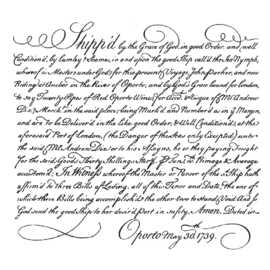 Shipp'd by the Grace of God, in good Order, and well
Condition'd, by Lumley & Soame, in and upon the good Ship call'd the Ann Nymph,
whereof is Master under God for this present Voyage, John Dorker, and now
Riding at Anchor in the River of Oporto, and by God's Grace bound for London,
to say Twenty Pipes of Red Oporto Wines for Acct & Risque of Mr Andrew
Die Merch. in the said place, being Mark'd and Number'd as in ye Margin,
and are to be Deliver'd in the Like good Order, & Well Condition'd at the
aforesaid Port of London, (the Danger of the Seas only Excepted) unto
the said Mr Andrew Die or to his Assigns, he or they paying Freight
for the said Goods Thirty Shillings Primage & Average
accustom'd. In Witness whereof the Master or Purser of the sd Ship hath
affirm'd to Three Bills of Lading, all of this Tenor and Date, the one of
which Three Bills being accomplish'd the other two to stand Void And so
God send the good Ship to her desir'd Port in safety, Amen. Dated in
Oporto May 3d. 1739.